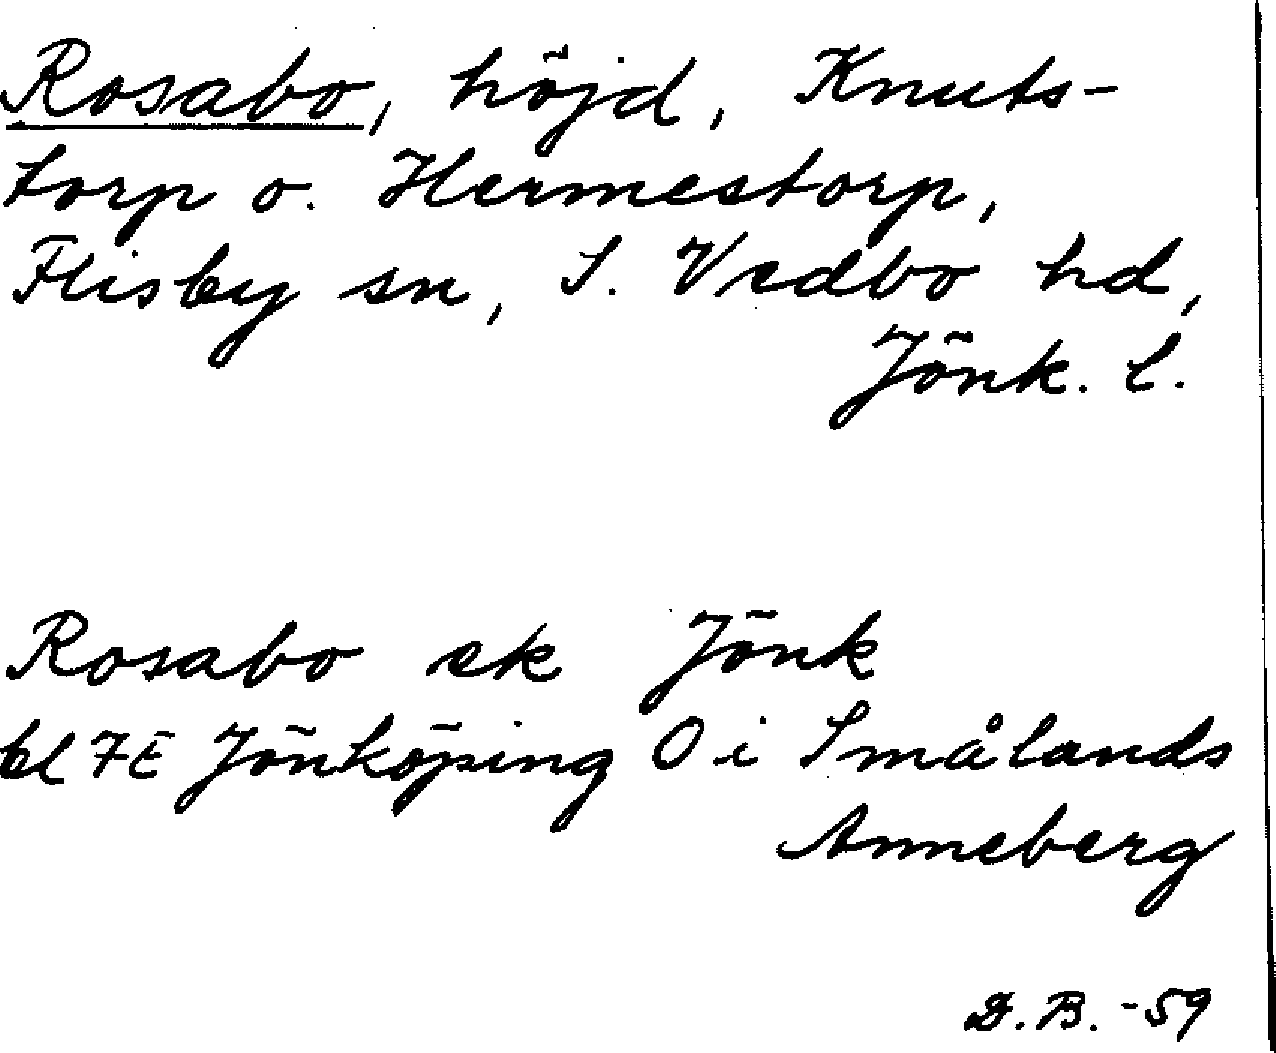 Rosabo, höjd, Knuts-
torp o. Hermestorp,
Flisby sn, S. Vedbo hd,
Jönk. l.
Rosabo ek Jönk
bl 7E Jönköping O i Smålands
Anneberg
D.B. -59